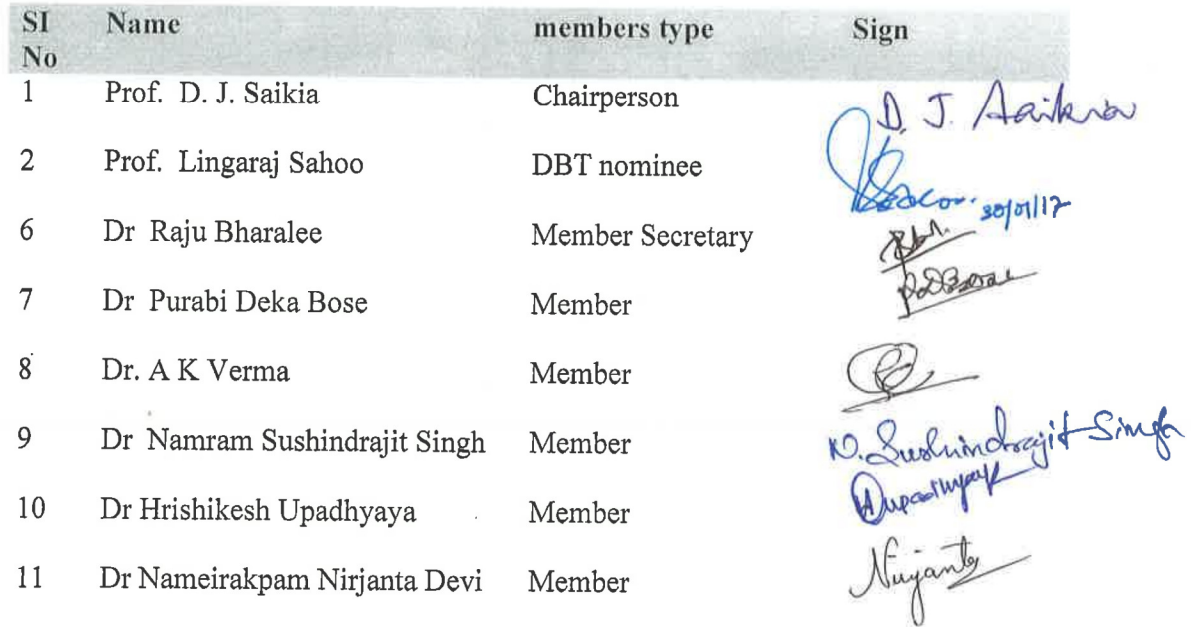 SI No Name members type Sign
1 Prof. D. J. Saikia Chairperson D. J. Saikia
2 Prof. Lingaraj Sahoo DBT nominee 30/01/17
6 Dr Raju Bharalee Member Secretary
7 Dr Purabi Deka Bose Member
8 Dr. A K Verma Member
9 Dr Namram Sushindrajit Singh Member N. Sushindrajit Singh
10 Dr Hrishikesh Upadhyaya Member
11 Dr Nameirakpam Nirjanta Devi Member Nirjanta